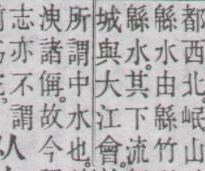 都西北岷山
緜水由緜竹
緜水。其下流
城與大江會
所謂中水也。
洩諸偁。故今
志亦不謂人